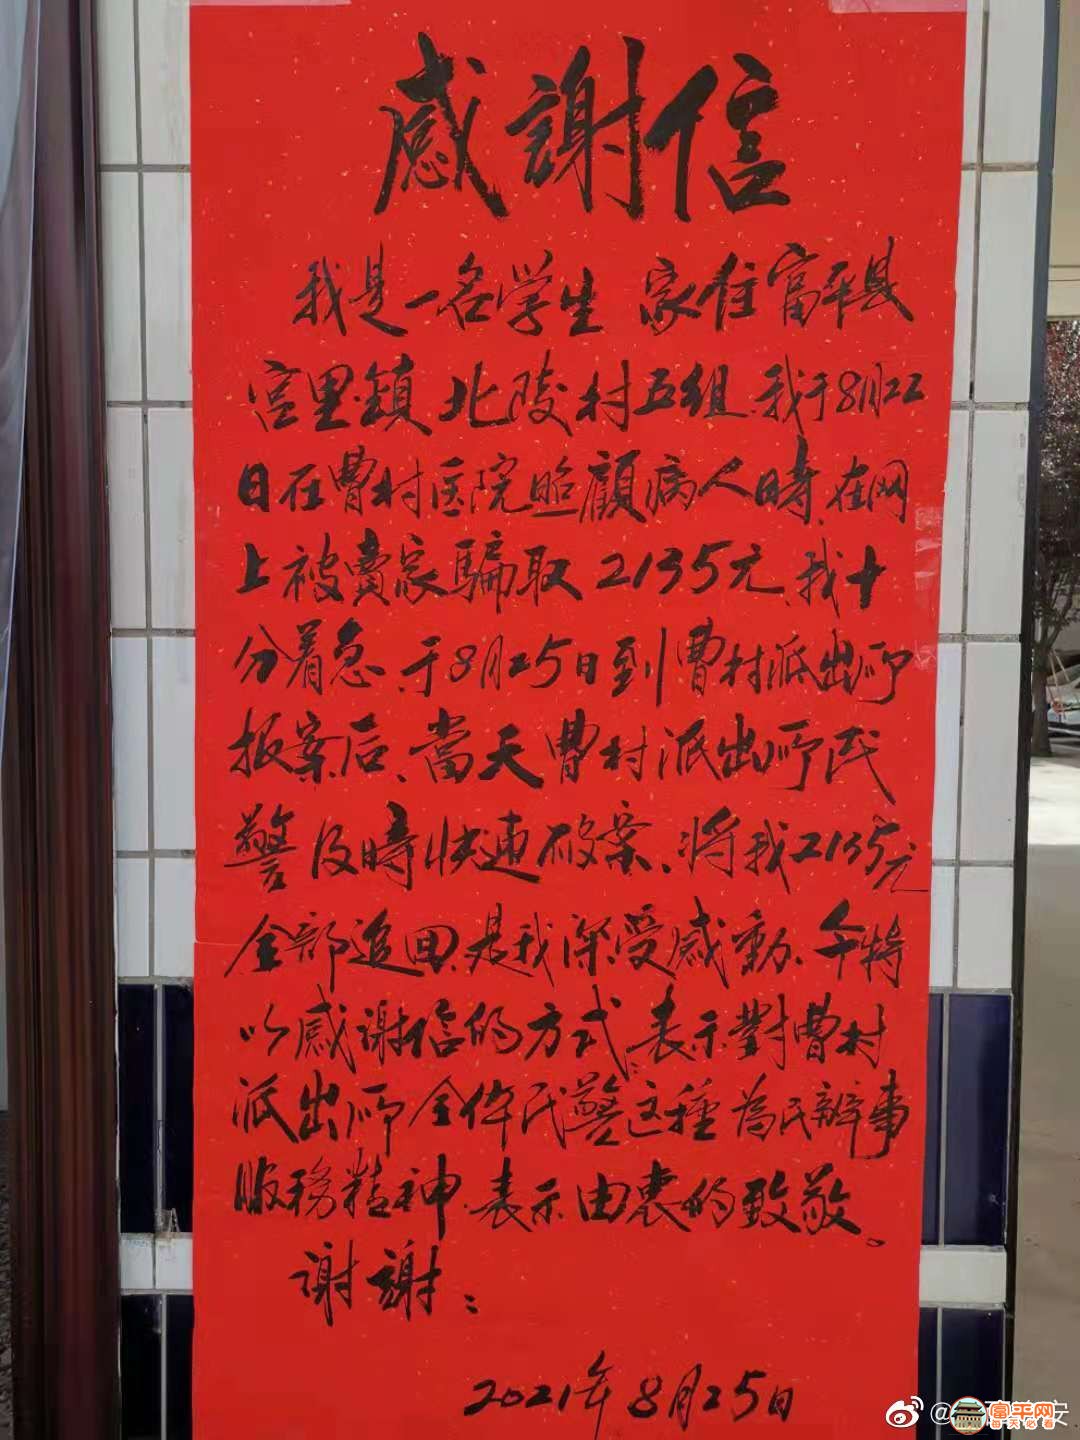 感謝信
我是一名学生 家住富平县
宫里镇北陵村五组、我于8月22
日在曹村医院照顧病人時、在网
上被賣家騙取2135元、我十
分着急、于8月25日到曹村派出所
报案后、當天曹村派出所民
警及時快速破案、将我2135元
全部追回、是我深受感動、今特
以感谢信的方式、表示對曹村
派出所全体民警这種為民辦事
服務精神、表示由衷的致敬。
谢謝:
2021年8月25日
富平网
安